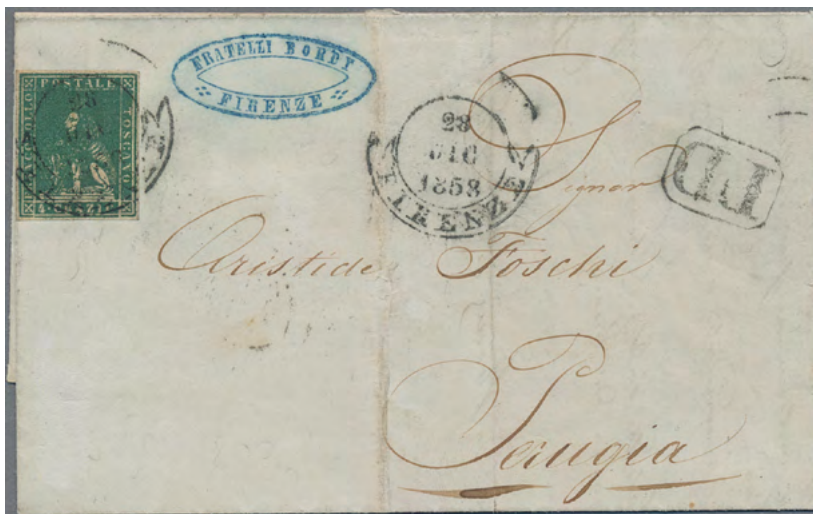 FRATELLI BORDY
FIRENZE
POSTALE
FRANCOBOLLO
TOSCANO
28
28
1858
FIRENZE
PD
Signor
Aristide Foschi
Perugia